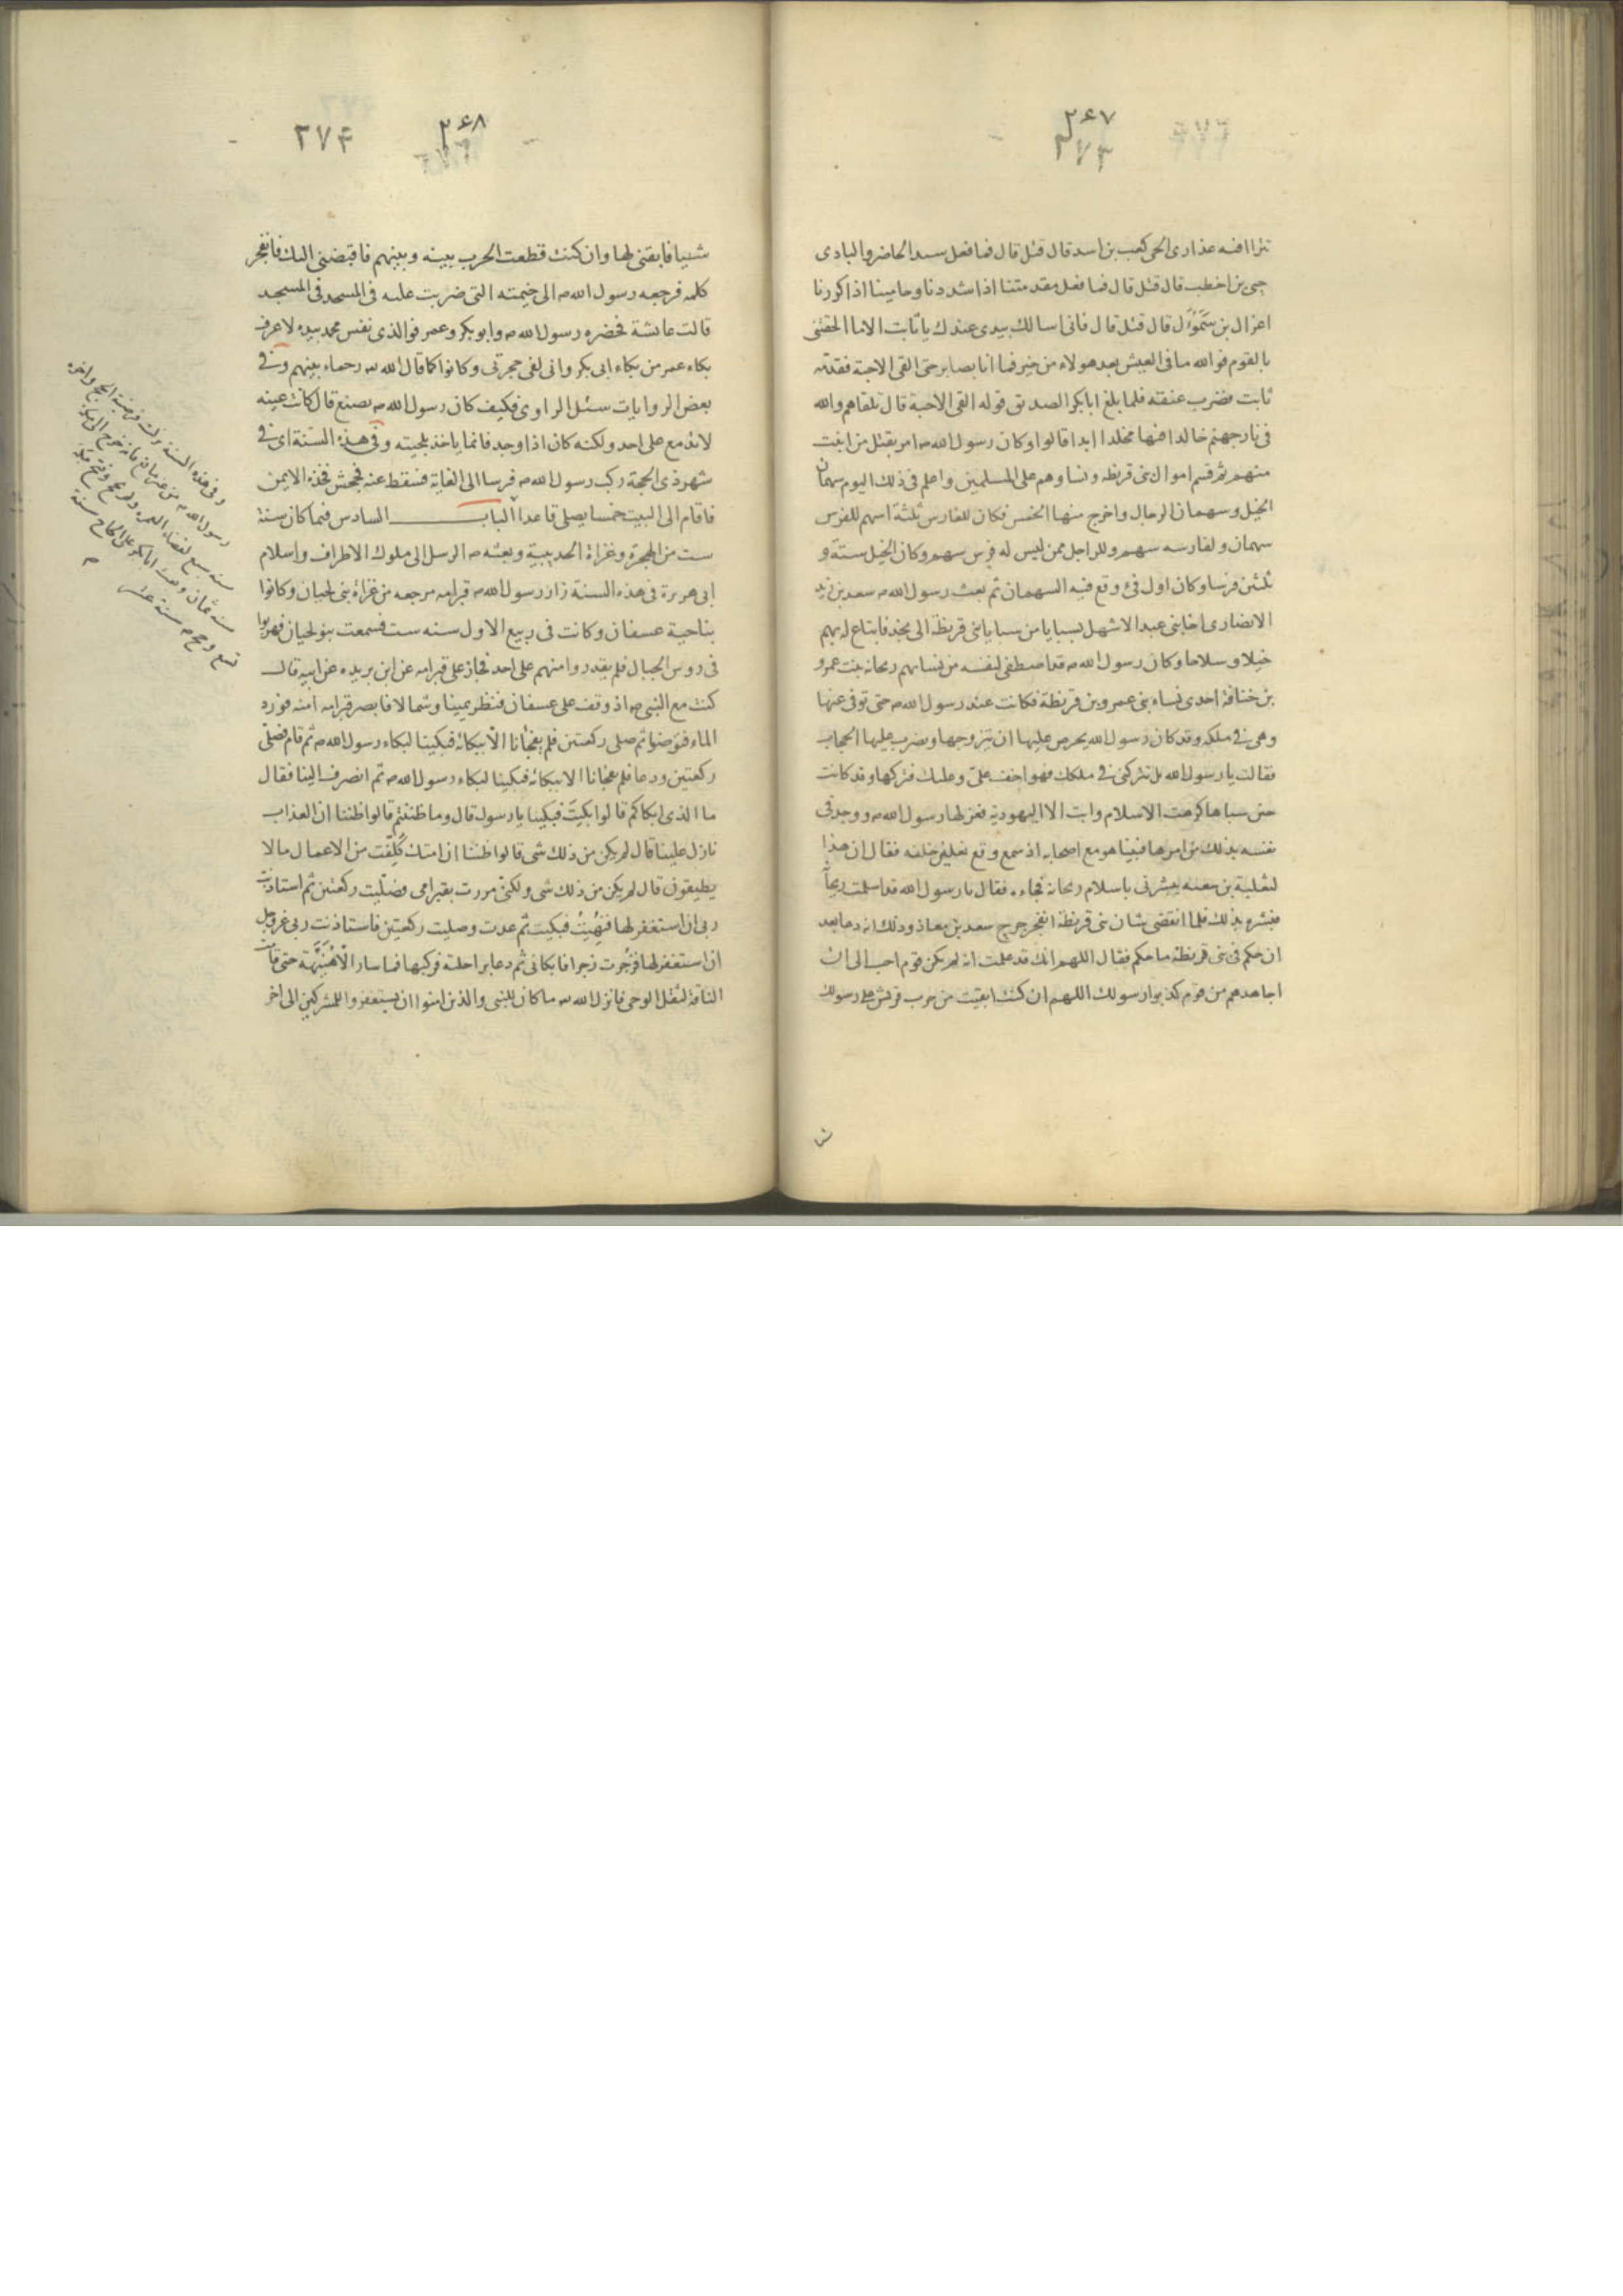 ٢٦٧
٢٧٣
تترا افيه عذارى الحى كعب بن اسد قال قتل قال فما فعل سيد الحاضر والبادى
حيى بن اخطب قال قتل قال فما فعل مقدمتنا اذا شددنا وحاميتنا اذا كررنا
اعزال بن سموءل قال قتل قال فانى اسالك بيدى عندك يا ثابت الاما الحقتنى
بالقوم فوالله ما فى العيش بعد هولاء من خير فما انا بصابر حتى القى الاحبة فقدمه
ثابت فضرب عنقه فلما بلغ ابابكر الصديق قوله القى الاحبة قال تلقاهم والله
فى نار جهنم خالدا فيها مخلدا ابدا قالوا وكان رسول الله ص امر بقتل من انبت
منهم ثم قسم اموال بنى قريظه ونساوهم على المسلمين واعلم فى ذلك اليوم سهمان
الخيل وسهمان الرجال واخرج منها الخمس فكان للفارس ثلثة اسهم للفرس
سهمان ولفارسه سهم وللراجل ممن ليس له فرس سهم وكان الخيل ستة و
ثلثين فرسا وكان اول فئ وقع فيه السهمان ثم بعث رسول الله ص سعد بن زيد
الانصارى اخا بنى عبد الاشهل بسبايا من سبايا بنى قريظة الى نجد فابتاع له بهم
خيلا وسلاحا وكان رسول الله ص قد اصطفى لنفسه من نسايهم ريحانه بنت عمرو
بن خنافة احدى نساء بنى عمرو بن قريظة فكانت عند رسول الله ص حتى توفى عنها
وهى فى ملكه وقد كان رسول الله يحرص عليها ان يتزوجها ويضرب عليها الحجاب
فقالت يا رسول الله بل تتركنى فى ملكك فهو اخف على وعليك فتركها وقد كانت
حين سباها كرهت الاسلام وابت الا اليهودية فعزلها رسول الله ص ووجد فى
نفسه بذلك من امرها فبينا هو مع اصحابه اذ سمع وقع نعلين خلفه فقال ان هذا
لثعلبة بن سعنه يبشرنى باسلام ريحانه فجاءه فقال يا رسول الله قد اسلمت ريحانة
فبشره بذلك فلما انقضى شان بنى قريظة انفجر جرح سعد بن معاذ وذلك انه دعا بعد
ان حكم فى بنى قريظة ما حكم فقال اللهم انك قد علمت انه لم يكن قوم احب الى ان
اجاهدهم من قوم كذبوا رسولك اللهم ان كنت ابقيت من حرب قريش على رسولك
٢٦٨
٢٧٤
شييا فابقنى لها وان كنت قطعت الحرب بينه وبينهم فاقبضنى اليك فانفجر
كلمه فرجعه رسول الله ص الى خيمته التى ضربت عليه فى المسجد فى المسجد
قالت عائشة فحضره رسول الله ص وابو بكر وعمر فوالذى نفس محمد بيده لاعرف
بكاء عمر من بكاء ابى بكر وانى لفى حجرتى وكانوا كما قال الله رحماء بينهم وفى
بعض الروايات سئل الراوى فكيف كان رسول الله ص يصنع قال كانت عينه
لا تدمع على احد ولكنه كان اذا وجد فانما ياخذ بلحيته وفى هذه السنة اى فى
شهر ذى الحجة ركب رسول الله ص فرسا الى الغابة فسقط عنه فجحش فخذه الايمن
فاقام الى البيت خمسا يصلى قاعدا الباب السادس فيما كان سنة
ست من الهجرة وغزاة الحديبية وبعثه ص الرسل الى ملوك الاطراف واسلام
ابى هريرة فى هذه السنة زار رسول الله ص قبر امه مرجعه من غزاة بنى لحيان وكانوا
بناحية عسفان وكانت فى ربيع الاول سنه ست فسمعت بنو لحيان فهربوا
فى روس الجبال فلم يقدروا منهم على احد فجاز على قبر امه عن ابن بريده عن ابيه قال
كنت مع النبى ص اذ وقف على عسفان فنظر يمينا وشمالا فابصر قبر امه امنه فورد
الماء فتوضا ثم صلى ركعتين فلم يفجانا الا ببكائه فبكينا لبكاء رسول الله ص ثم قام فصلى
ركعتين ودعا فلم يفجانا الا ببكائه فبكينا لبكاء رسول الله ص ثم انصرف الينا فقال
ما الذى ابكاكم قالوا بكيت فبكينا يا رسول قال وما ظننتم قالوا ظننا ان العذاب
نازل علينا قال لم يكن من ذلك شى قالوا ظننا ان امتك كلفت من الاعمال مالا
يطيقون قال لم يكن من ذلك شى ولكنى مررت بقبر امى فصليت ركعتين ثم استاذنت
ربى ان استغفر لها فنهيت فبكيت ثم عدت وصليت ركعتين فاستاذنت ربى عز وجل
ان استغفر لها فزجرت زجرا فابكانى ثم دعا براحلته فركبها فما سار الا هنيهة حتى قامت
الناقة لثقل الوحى فانزل الله ما كان للنبى والذين امنوا ان يستغفروا للمشركين الى اخر
وفى هذه السنة نزلت فريضة الحج واخره
رسول الله ص من غير مانع فانه خرج الى مكة
سنة سبع لقضاء العمره ولم يحج وفتح مكة
سنه ثمان وبعث ابابكر على الحاج سنة
تسع وحج ص سنة عشر